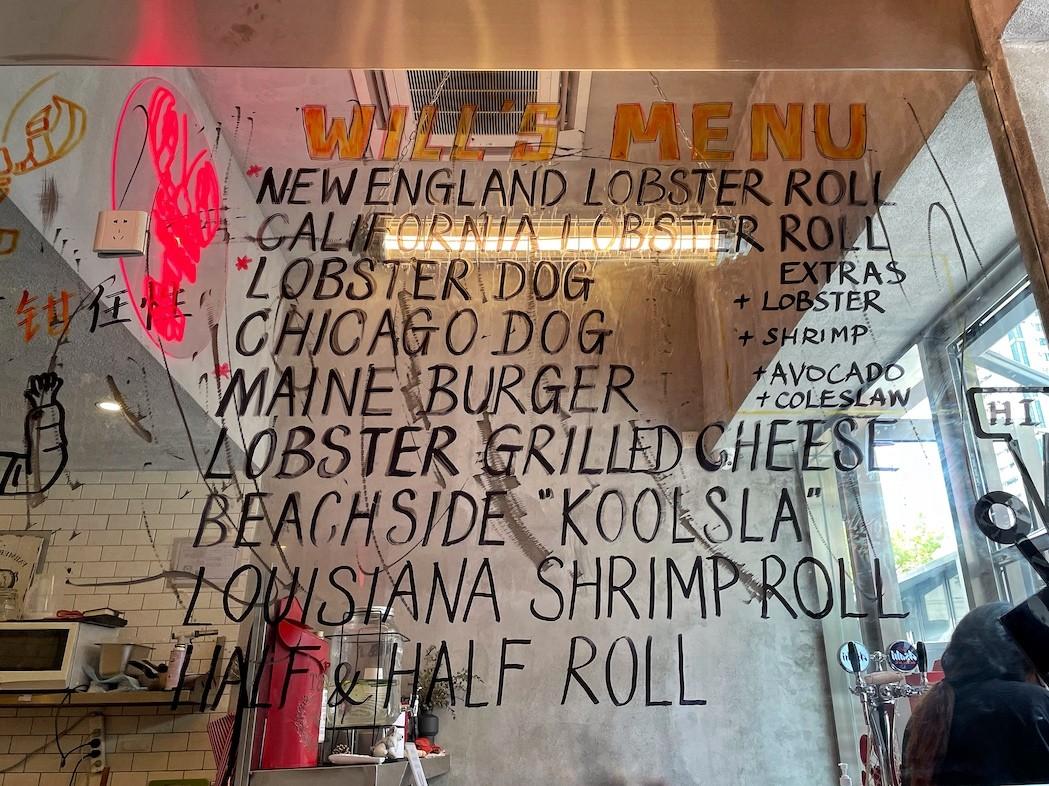 WILL'S MENU
* NEW ENGLAND LOBSTER ROLL
CALIFORNIA LOBSTER ROLL
* LOBSTER DOG
CHICAGO DOG
* MAINE BURGER
LOBSTER GRILLED CHEESE
BEACHSIDE "KOOLSLA"
LOUISIANA SHRIMP ROLL
HALF & HALF ROLL
EXTRAS
+ LOBSTER
+ SHRIMP
+ AVOCADO
+ COLESLAW
钳住性
HI
Asahi